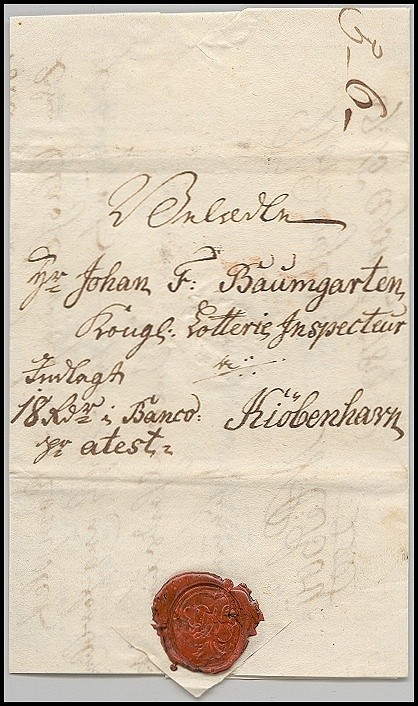 3. 6.
Velædle
Hr Johan F: Baumgarten,
Kongl: Lotterie Inspecteur
Indlagt
18 Rdr i Banco:
Kiöbenhavn
pr atest: